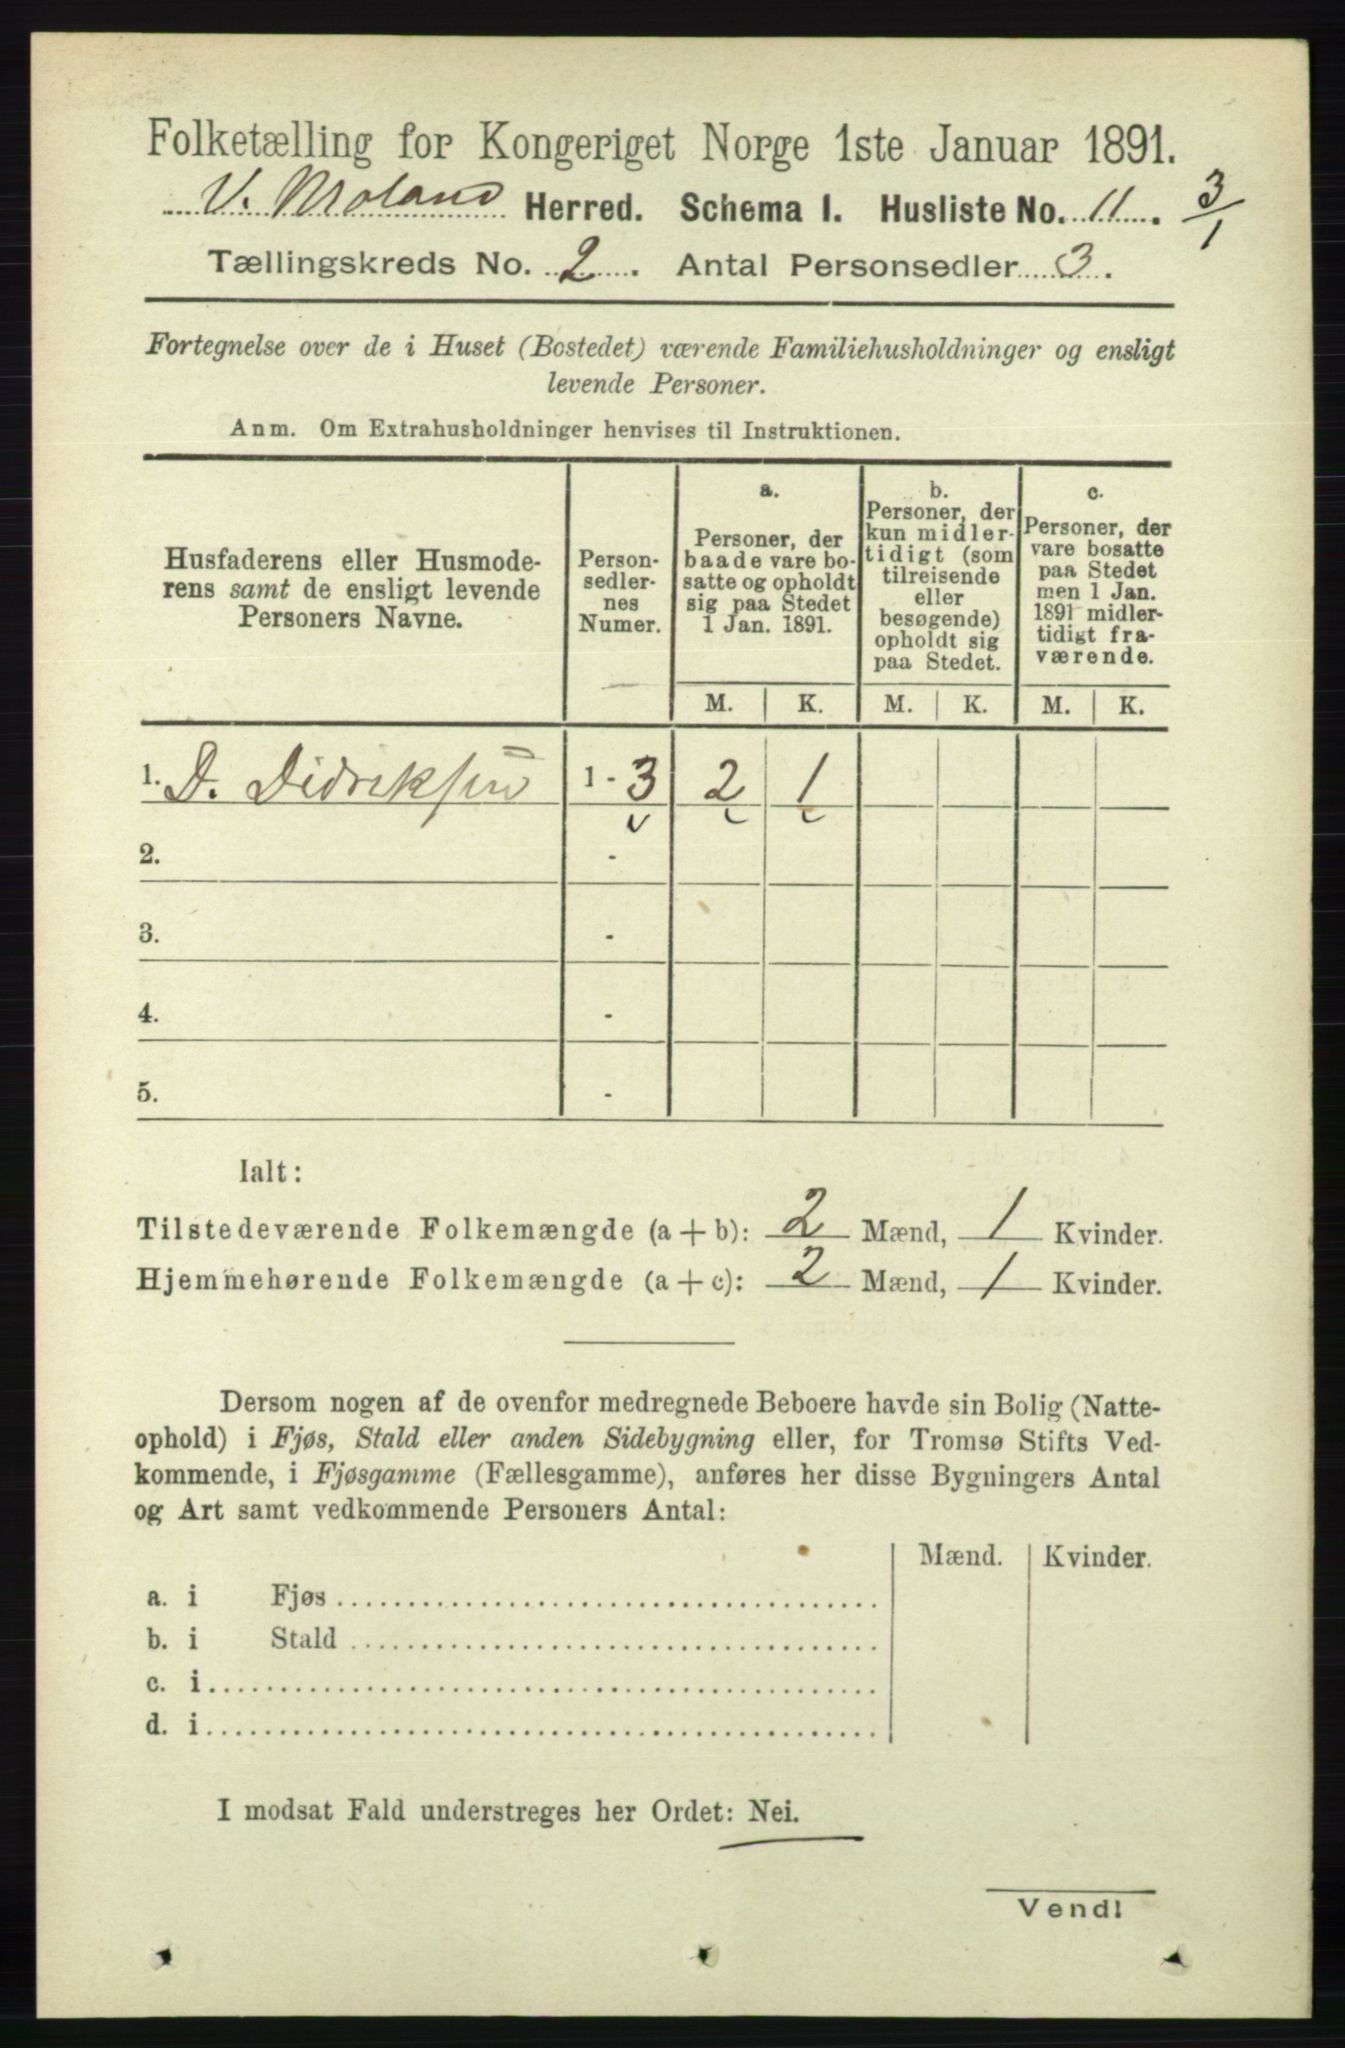 Folketælling for Kongeriget Norge 1ste Januar 1891.
V. Moland Herred. Schema I. Husliste No. 11. 3/1
Tællingskreds No. 2. Antal Personsedler 3.
Fortegnelse over de i Huset (Bostedet) værende Familiehusholdninger og ensligt
levende Personer.
Anm. Om Extrahusholdninger henvises til Instruktionen.
Husfaderens eller Husmode-
rens samt de ensligt levende
Personers Navne.
Person-
sedler-
nes
Numer.
a.
Personer, der
baade vare bo-
satte og opholdt
sig paa Stedet
1 Jan. 1891.
b.
Personer, der
kun midler-
tidigt (som
tilreisende
eller
besøgende)
opholdt sig
paa Stedet.
c.
Personer, der
vare bosatte
paa Stedet
men 1 Jan.
1891 midler-
tidigt fra-
værende.
M. K. M. K. M. K.
1. D. Didriksen 1 - 3 2 1
2. -
3. -
4. -
5. -
Ialt:
Tilstedeværende Folkemængde (a + b): 2 Mænd, 1 Kvinder.
Hjemmehørende Folkemængde (a + c): 2 Mænd, 1 Kvinder.
Dersom nogen af de ovenfor medregnede Beboere havde sin Bolig (Natte-
ophold) i Fjøs, Stald eller anden Sidebygning eller, for Tromsø Stifts Ved-
kommende, i Fjøsgamme (Fællesgamme), anføres her disse Bygningers Antal
og Art samt vedkommende Personers Antal:
Mænd. Kvinder.
a. i Fjøs
b. i Stald
c. i
d. i
I modsat Fald understreges her Ordet: Nei.
Vend!